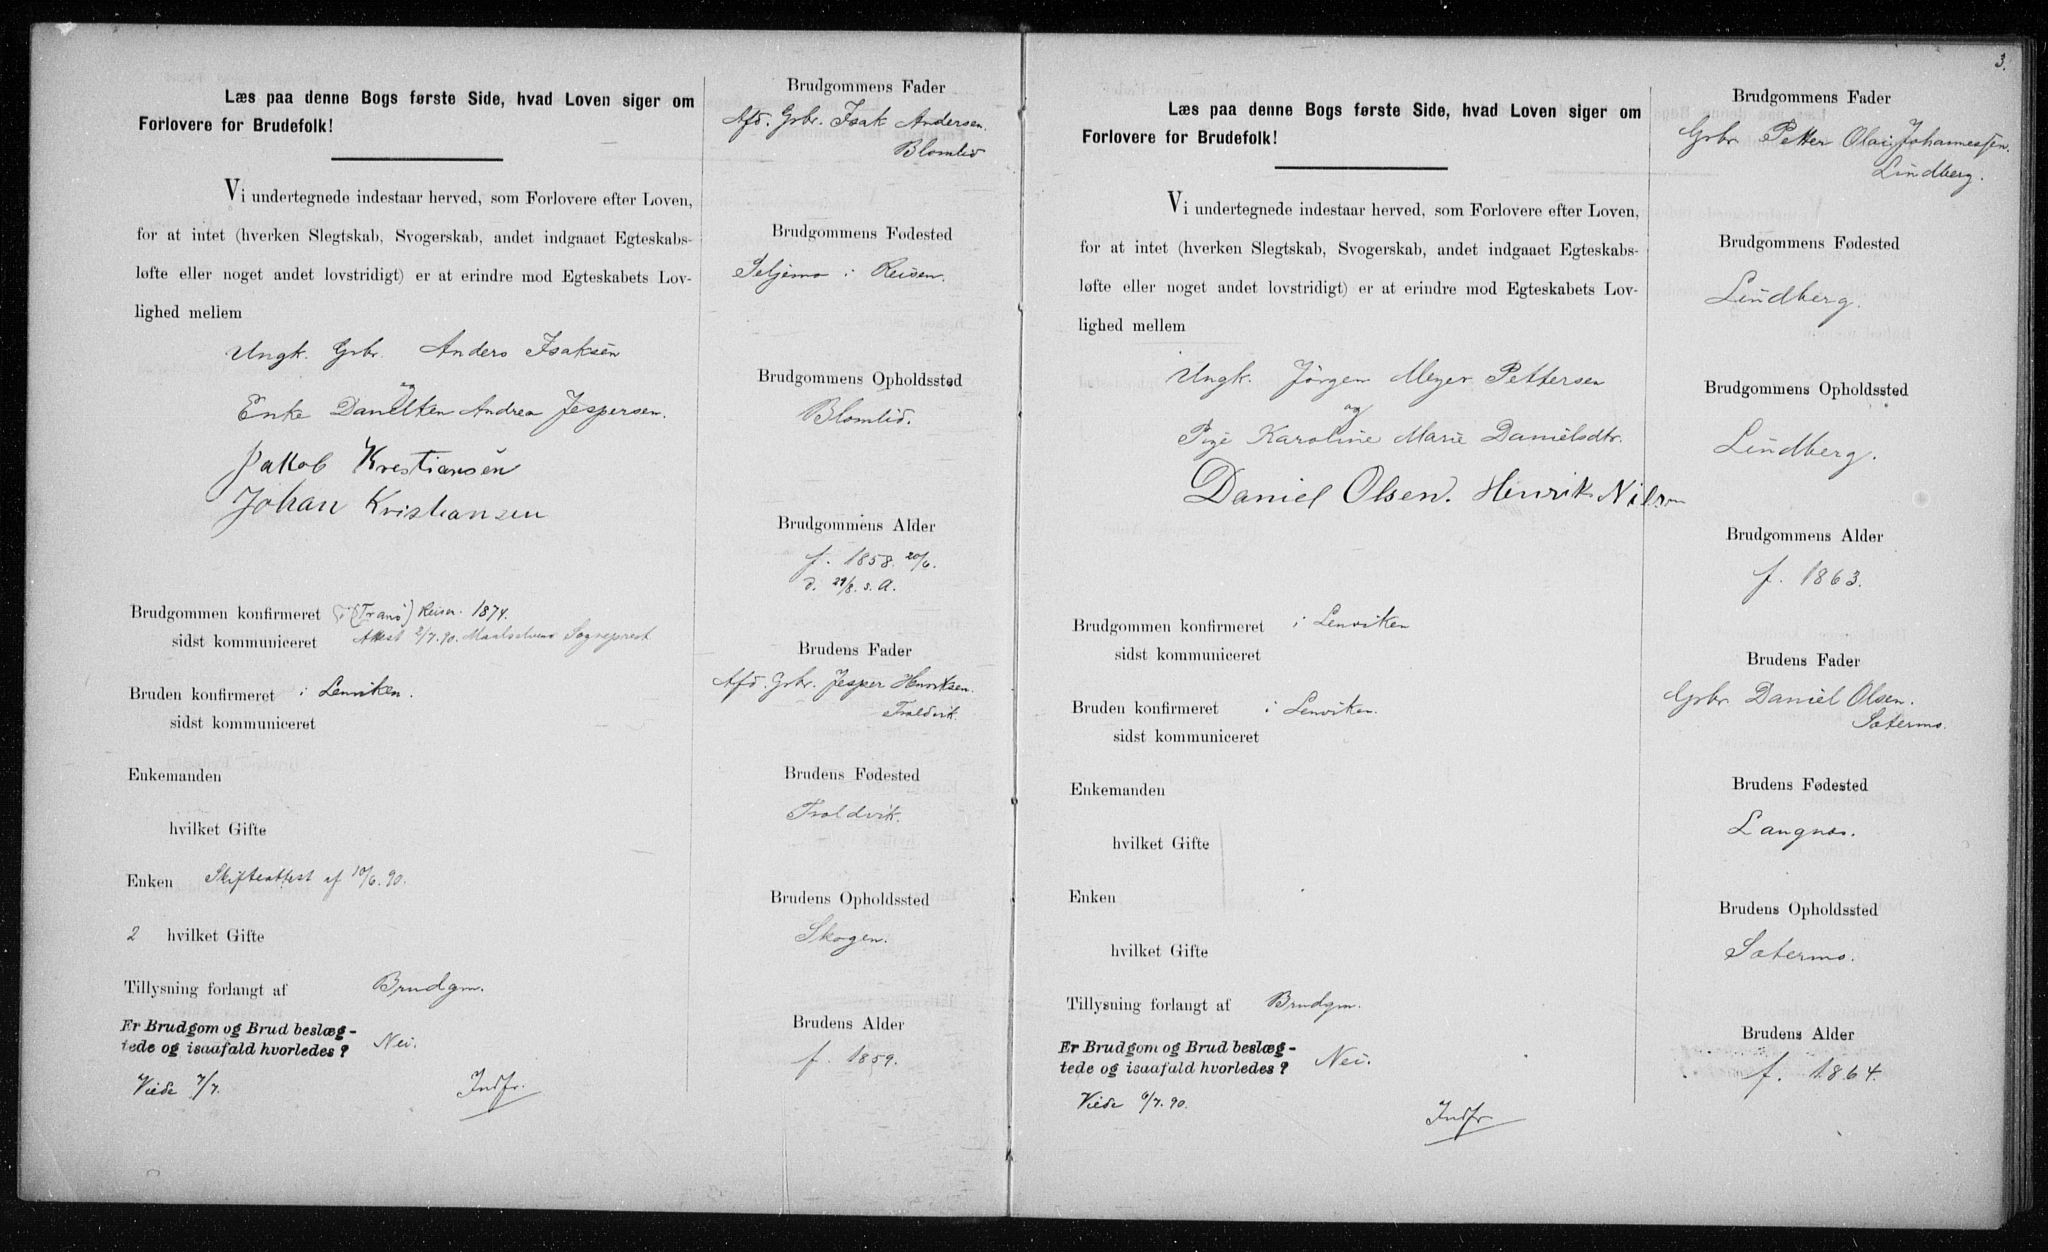 Læs paa denne Bogs første Side, hvad Loven siger om
Forlovere for Brudefolk!
Vi undertegnede indestaar herved, som Forlovere efter Loven,
for at intet (hverken Slegtskab, Svogerskab, andet indgaaet Egteskabs-
løfte eller noget andet lovstridigt) er at erindre mod Egteskabets Lov-
lighed mellem
Ungk. Gbr. Anders Isaksen
og
Enke Danelken Andrea Jespersen.
Jakob Kristiansen
Johan Kristiansen
Brudgommen konfirmeret i (Tranø) Reisen. 1874.
sidst kommuniceret Attest 2/7.90. Maalselvens Sogneprest
Bruden konfirmeret i Lenviken.
sidst kommuniceret
Enkemanden
hvilket Gifte
Enken Skifteattest af 10/6.90.
2 hvilket Gifte
Tillysning forlangt af Brudgm.
Er Brudgom og Brud beslæg-
tede og isaafald hvorledes? Nei.
Viede 7/7. Indfr.
Brudgommens Fader
Afd. Gbr. Isak Andersen.
Blomlid
Brudgommens Fødested
Seljemo i Reisen.
Brudgommens Opholdssted
Blomlid.
Brudgommens Alder
f. 1858. 20/6.
d. 29/8. s. A.
Brudens Fader
Afd. Gbr. Jesper Henriksen.
Troldvik.
Brudens Fødested
Troldvik.
Brudens Opholdssted
Skogen.
Brudens Alder
f. 1859.
3.
Læs paa denne Bogs første Side, hvad Loven siger om
Forlovere for Brudefolk!
Vi undertegnede indestaar herved, som Forlovere efter Loven,
for at intet (hverken Slegtskab, Svogerskab, andet indgaaet Egteskabs-
løfte eller noget andet lovstridigt) er at erindre mod Egteskabets Lov-
lighed mellem
Ungk. Jørgen Meyer Pettersen
og
Pige Karoline Marie Danielsdtr.
Daniel Olsen. Henrik Nilsen
Brudgommen konfirmeret i Lenviken
sidst kommuniceret
Bruden konfirmeret i Lenviken.
sidst kommuniceret
Enkemanden
hvilket Gifte
Enken
hvilket Gifte
Tillysning forlangt af Brudgm.
Er Brudgom og Brud beslæg-
tede og isaafald hvorledes? Nei.
Viede 6/7.90. Indfr
Brudgommens Fader
Gbr Petter Olai Johannessen.
Lindberg.
Brudgommens Fødested
Lindberg.
Brudgommens Opholdssted
Lindberg.
Brudgommens Alder
f. 1863.
Brudens Fader
Gbr. Daniel Olsen.
Sætermo.
Brudens Fødested
Langnes.
Brudens Opholdssted
Sætermo.
Brudens Alder
f. 1864.